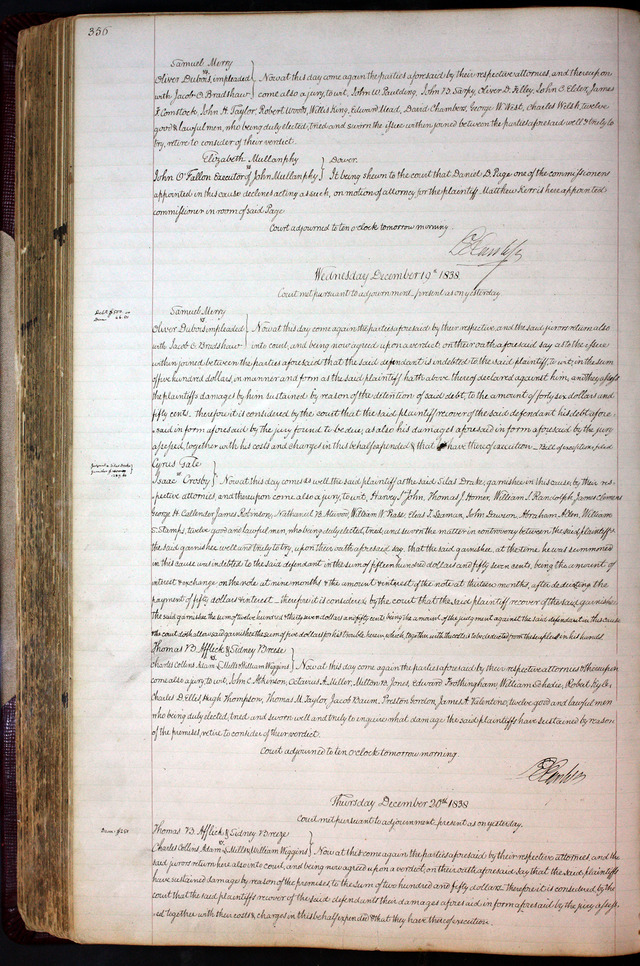 356
Samuel Merry
vs
Oliver Dubois, impleaded } Now at this day come again the parties aforesaid by their respective attornies, and thereupon
with Jacob C. Bradshaw } come also a jury, to wit, John W. Paulding, John B. Sarpy, Oliver D. Filley, John C. Elder, James
F. Comstock, John H. Taylor, Robert Woods, Willis King, Edward Mead, David Chambers, George W. West, Charles Welsh, twelve
good & lawful men, who being duly elected, tried and sworn the issue within joined between the parties aforesaid well & truly to
try, retire to consider of their verdict.
Elizabeth Mullanphy } Dower.
vs
John O'Fallon Executor of John Mullanphy } It being shewn to the court that Daniel D. Page one of the commissioners
appointed in this cause declines acting as such, on motion of attorney for the plaintiff Matthew Kerr is here appointed
commissioner in room of said Page
Court adjourned to ten o'clock tomorrow morning
Wednesday December 19th 1838
Court met pursuant to adjournment, present as on yesterday.
Samuel Merry
vs
Oliver Dubois impleaded } Now at this day come again the parties aforesaid by their respective, and the said jurors return also
with Jacob C. Bradshaw } into court, and being now agreed upon a verdict, on their oath aforesaid say as to the issue
within joined between the parties aforesaid that the said defendant is indebted to the said plaintiff, to wit, in the sum
of five hundred dollars, in manner and form as the said plaintiff hath above thereof declared against him, and they assess
the plaintiffs damages by him sustained by reason of the detention of said debt, to the amount of forty six dollars and
fifty cents. therefore it is considered by the court that the said plaintiff recover of the said defendant his debt afore-
said in form aforesaid by the jury found to be due, as also his damages aforesaid in form aforesaid by the jury
assessed, together with his costs and charges in this behalf expended & that have thereof execution — Bill of exceptions filed
Cyrus Gale
vs
Isaac Crosby } Now at this day comes as well the said plaintiff as the said Silas Drake, garnishee in this cause by their res-
pective attornies, and thereupon come also a jury, to wit, Harvey St John, Thomas J. Horner, William S. Randolph, James Clemens
George H. Callender, James Robinson, Nathaniel B. Atwood, William W. Rase, Elias T. Seaman, John Lawson, Abraham Allen, William
Stamps, twelve good and lawful men, who being duly elected, tried, and sworn the matter in controversy between the said plaintiff &
the said garnishee well and truly to try, upon their oath aforesaid say. that the said garnishee, at the time he was summoned
in this cause was indebted to the said defendant in the sum of fifteen hundred dollars and fifty seven cents, being the amount of
interest & exchange on the note at nine months & the amount & interest of the note at thirteen months, after deducting the
payment of fifty dollars & interest — therefore it is considered by the court that the said plaintiff recover of the said garnishee
the said garnishee the sum of twelve hundred & thirty seven dollars and fifty cents, being the amount of the judgment against the said defendant in this cause
& the court doth allow said garnishee the sum of five dollars for his trouble herein, which, together with the costs is to be deducted from the surplus in his hands.
Thomas B. Afflick & Sidney Breese
vs
Charles Collins, Adam L. Mills & William Wiggins } Now at this day come again the parties aforesaid by their respective attornies & thereupon
come also a jury, to wit, John C. Atkinson, Octavius A. Miller, Milton B. Jones, Edward Frothingham, William Schedie, Robert Kyle,
Charles D. Ellis, Hugh Thompson, Thomas M. Taylor, Jacob Baum, Preston Gordon, James A. Valentine, twelve good and lawful men
who being duly elected, tried, and sworn well and truly to enquire what damage the said plaintiffs have sustained by reason
of the premises, retire to consider of their verdict.
Court adjourned to ten o'clock tomorrow morning.
Thursday December 20th 1838
Court met pursuant to adjournment, present as on yesterday.
Dam. $250
Thomas B. Afflick & Sidney Breeze
vs
Charles Collins, Adam L. Mills & William Wiggins } Now at this come again the parties aforesaid by their respective attornies, and the
said jurors return here also into court, and being now agreed upon a verdict, on their oath aforesaid say that the said plaintiffs
have sustained damage by reason of the premises, to the sum of two hundred and fifty dollars. therefore it is considered by the
court that the said plaintiffs recover of the said defendants their damages aforesaid in form aforesaid by the jury assess-
ed together with their costs & charges in this behalf expended & that they have thereof execution.